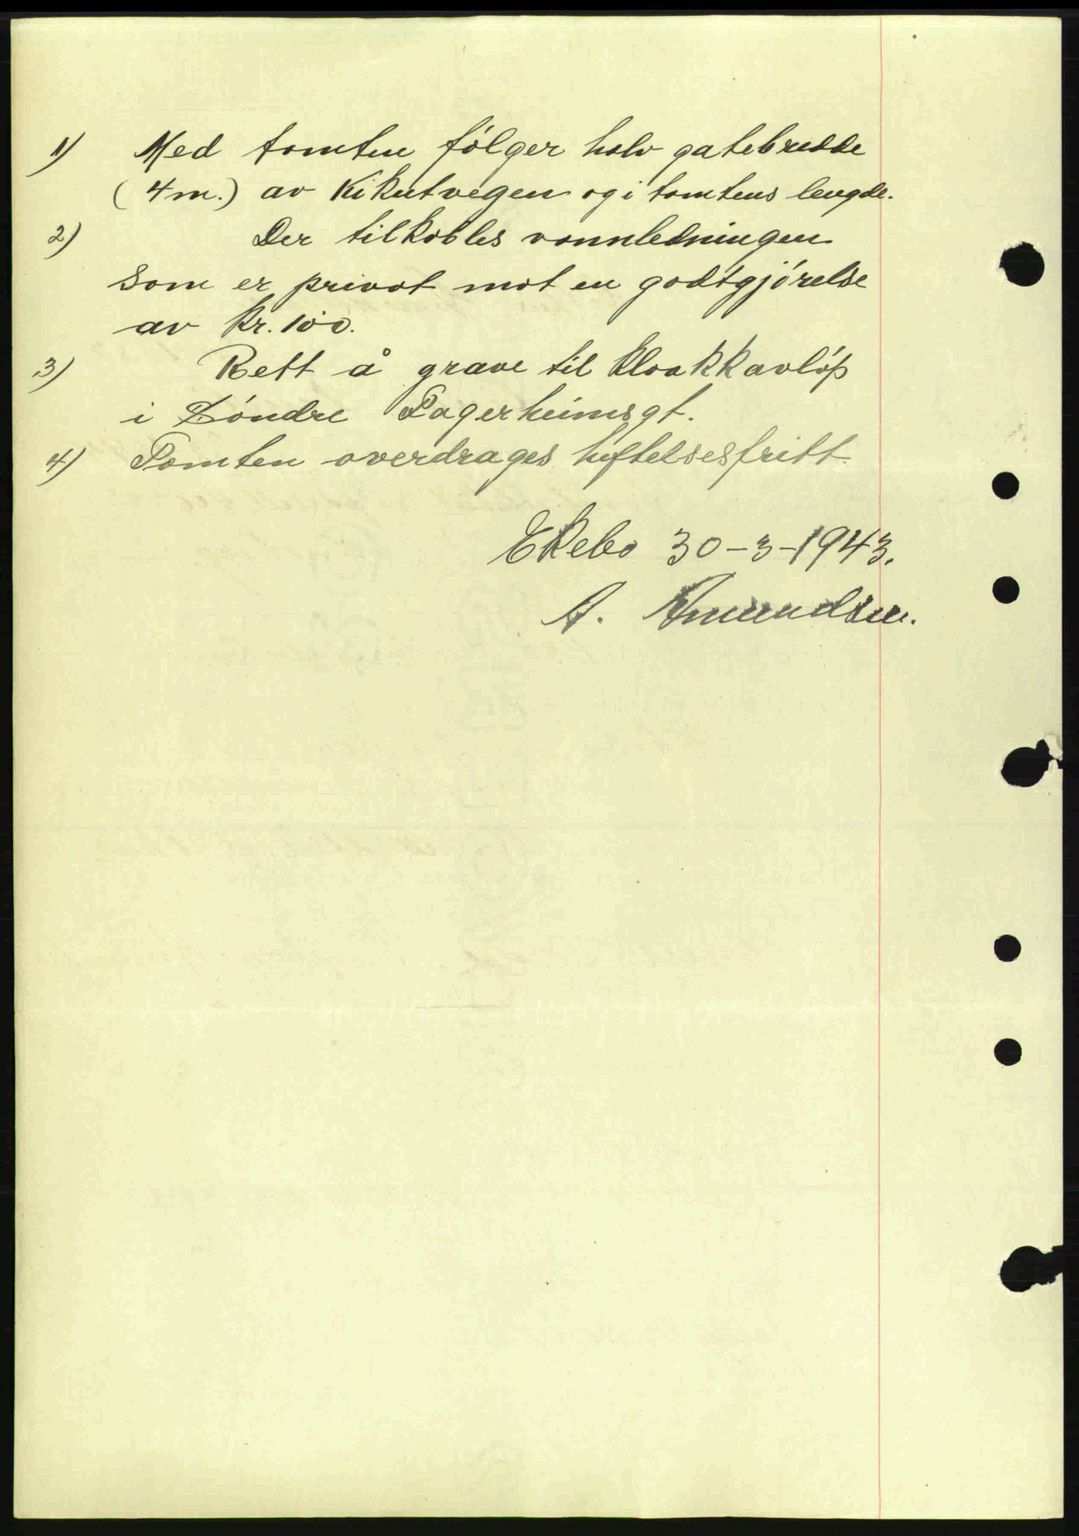 1) Med tomten følger halv gatebredde
(4m.) av Kikutvegen og i tomtens lengde.
2) Der tilkobles vannledningen
som er privat mot en godtgjørelse
av kr. 100.
3) Rett å grave til kloakkavløp
i Søndre Lagerheimsgt.
4) Tomten overdrages heftelsesfritt.
Ekebo 30-3-1943.
A. Amundsen.